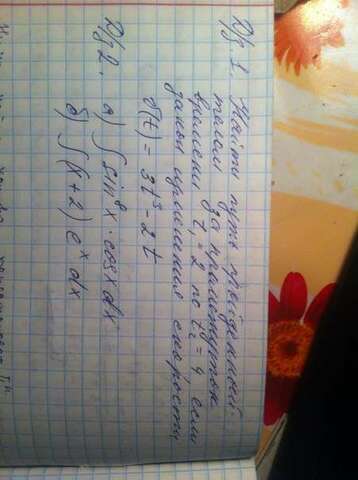 Д/з 1. Найти путь пройденный
телом за промежуток
времени t₁ = 2 по t₂ = 4 если
дано уравнение скорости
V(t) = 3t³ - 2t
Д/з 2. а) ∫ sin⁸x · cosx dx
б) ∫ (x+2) eˣ dx